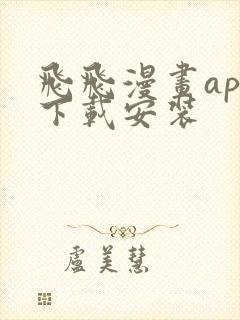 飛飛漫畫ap
下載安裝
盧美慧